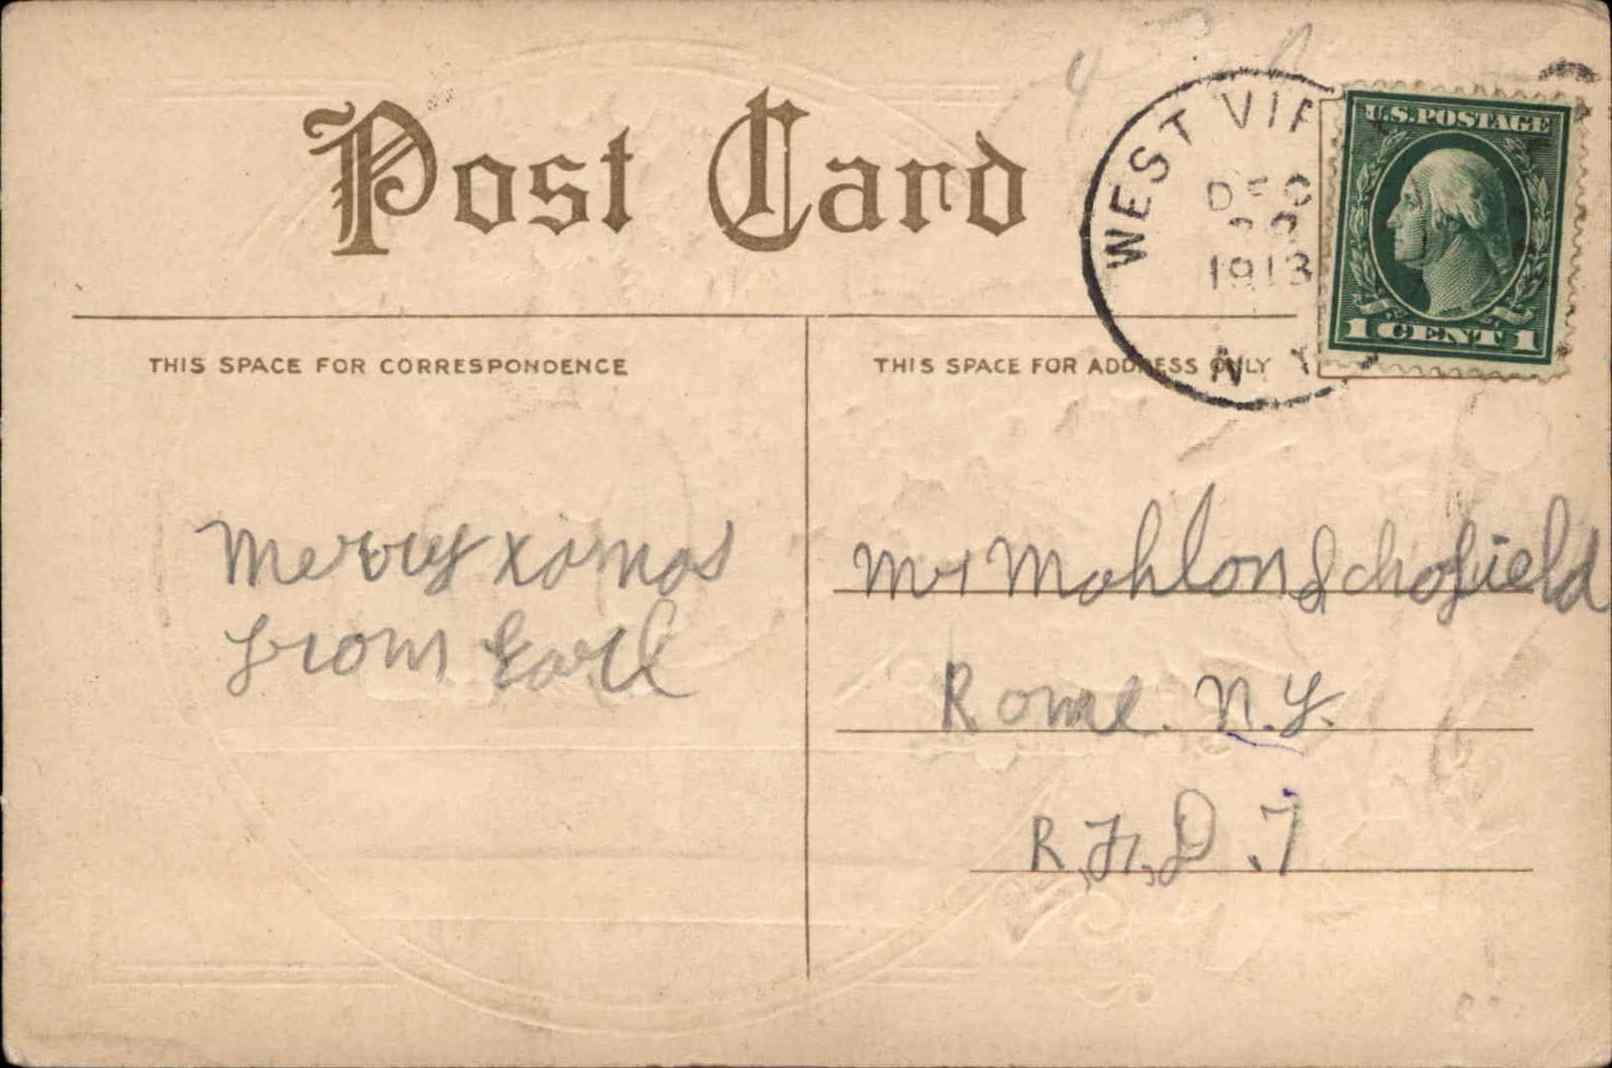 Post Card
WEST VIE
DEC
1913
N Y
U.S. POSTAGE
1 CENT 1
THIS SPACE FOR CORRESPONDENCE
THIS SPACE FOR ADDRESS ONLY
Merry xmas
from Earl
Mr Mahlon Schofield
Rome. N.Y.
R.F.D. 7